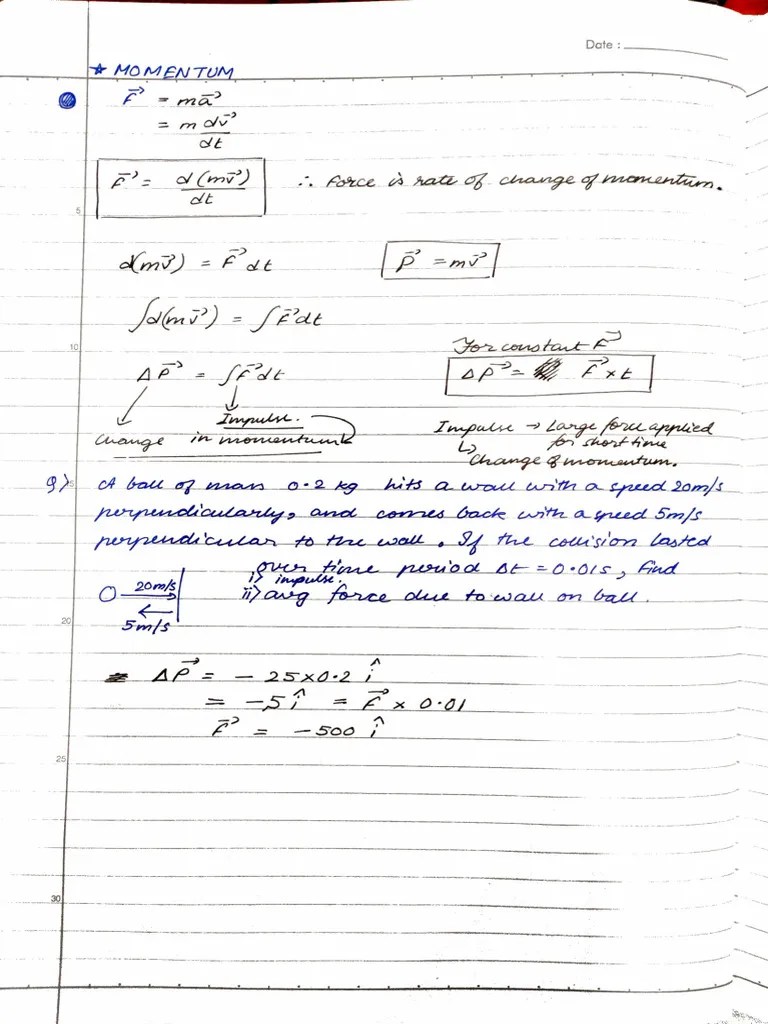 Date :
* MOMENTUM
F⃗ = ma⃗
= m dv⃗/dt
F⃗ = d(mv⃗)/dt ∴ Force is rate of change of momentum.
5
d(mv⃗) = F⃗ dt P⃗ = mv⃗
∫d(mv⃗) = ∫F⃗dt
10
For constant F⃗
ΔP⃗ = ∫F⃗dt ΔP⃗ = F⃗ × t
Impulse.
change in momentum
Impulse → Large force applied
for short time
↳ Change of momentum.
Q> A ball of mass 0.2 kg hits a wall with a speed 20m/s
perpendicularly, and comes back with a speed 5m/s
perpendicular to the wall. If the collision lasted
over time period Δt = 0.01s, find
i> impulse.
ii> avg force due to wall on ball.
20m/s
5m/s
20
ΔP⃗ = - 25×0.2 î
= -5 î = F⃗ × 0.01
F⃗ = -500 î
25
30